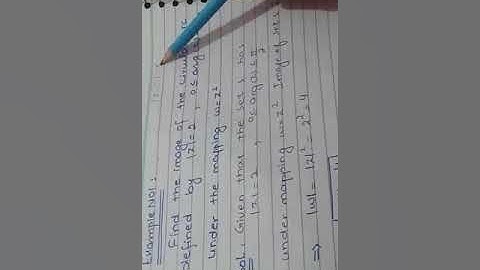 Example NO1:
Find the image of the circular arc
defined by |z|=2, 0≤ arg
under the mapping w=z²
Sol: Given that the set s has
|z|=2, 0≤ arg(z) ≤ π/2
under mapping w=z² Image of set s
⇒ |w| = |z|² = 2² = 4